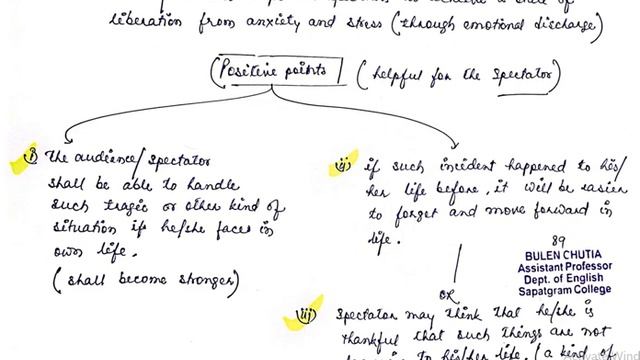 to achieve a state of
liberation from anxiety and stress (through emotional discharge)
(Positive points) (helpful for the Spectator)
i) The audience/spectator
shall be able to handle
such tragic or other kind of
situation if he/she faces in
own life.
(shall become stronger)
ii) if such incident happened to his/
her life before, it will be easier
to forget and move forward in
life.
OR
iii) Spectator may think that he/she is
thankful that such things are not
to his/her life. (a kind of
89
BULEN CHUTIA
Assistant Professor
Dept. of English
Sapatgram College